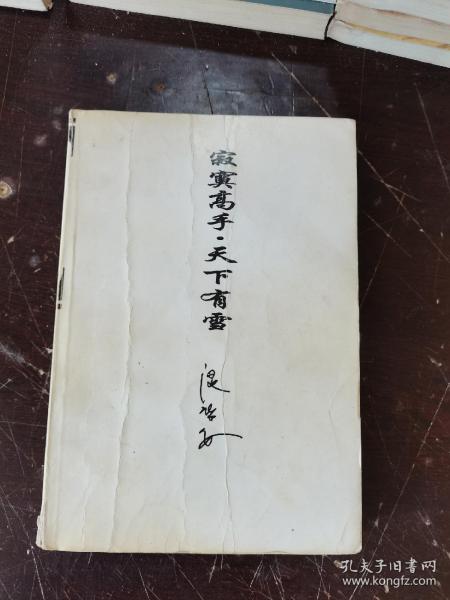 寂寞高手·天下有雪
温瑞安
孔夫子旧书网
www.kongfz.com